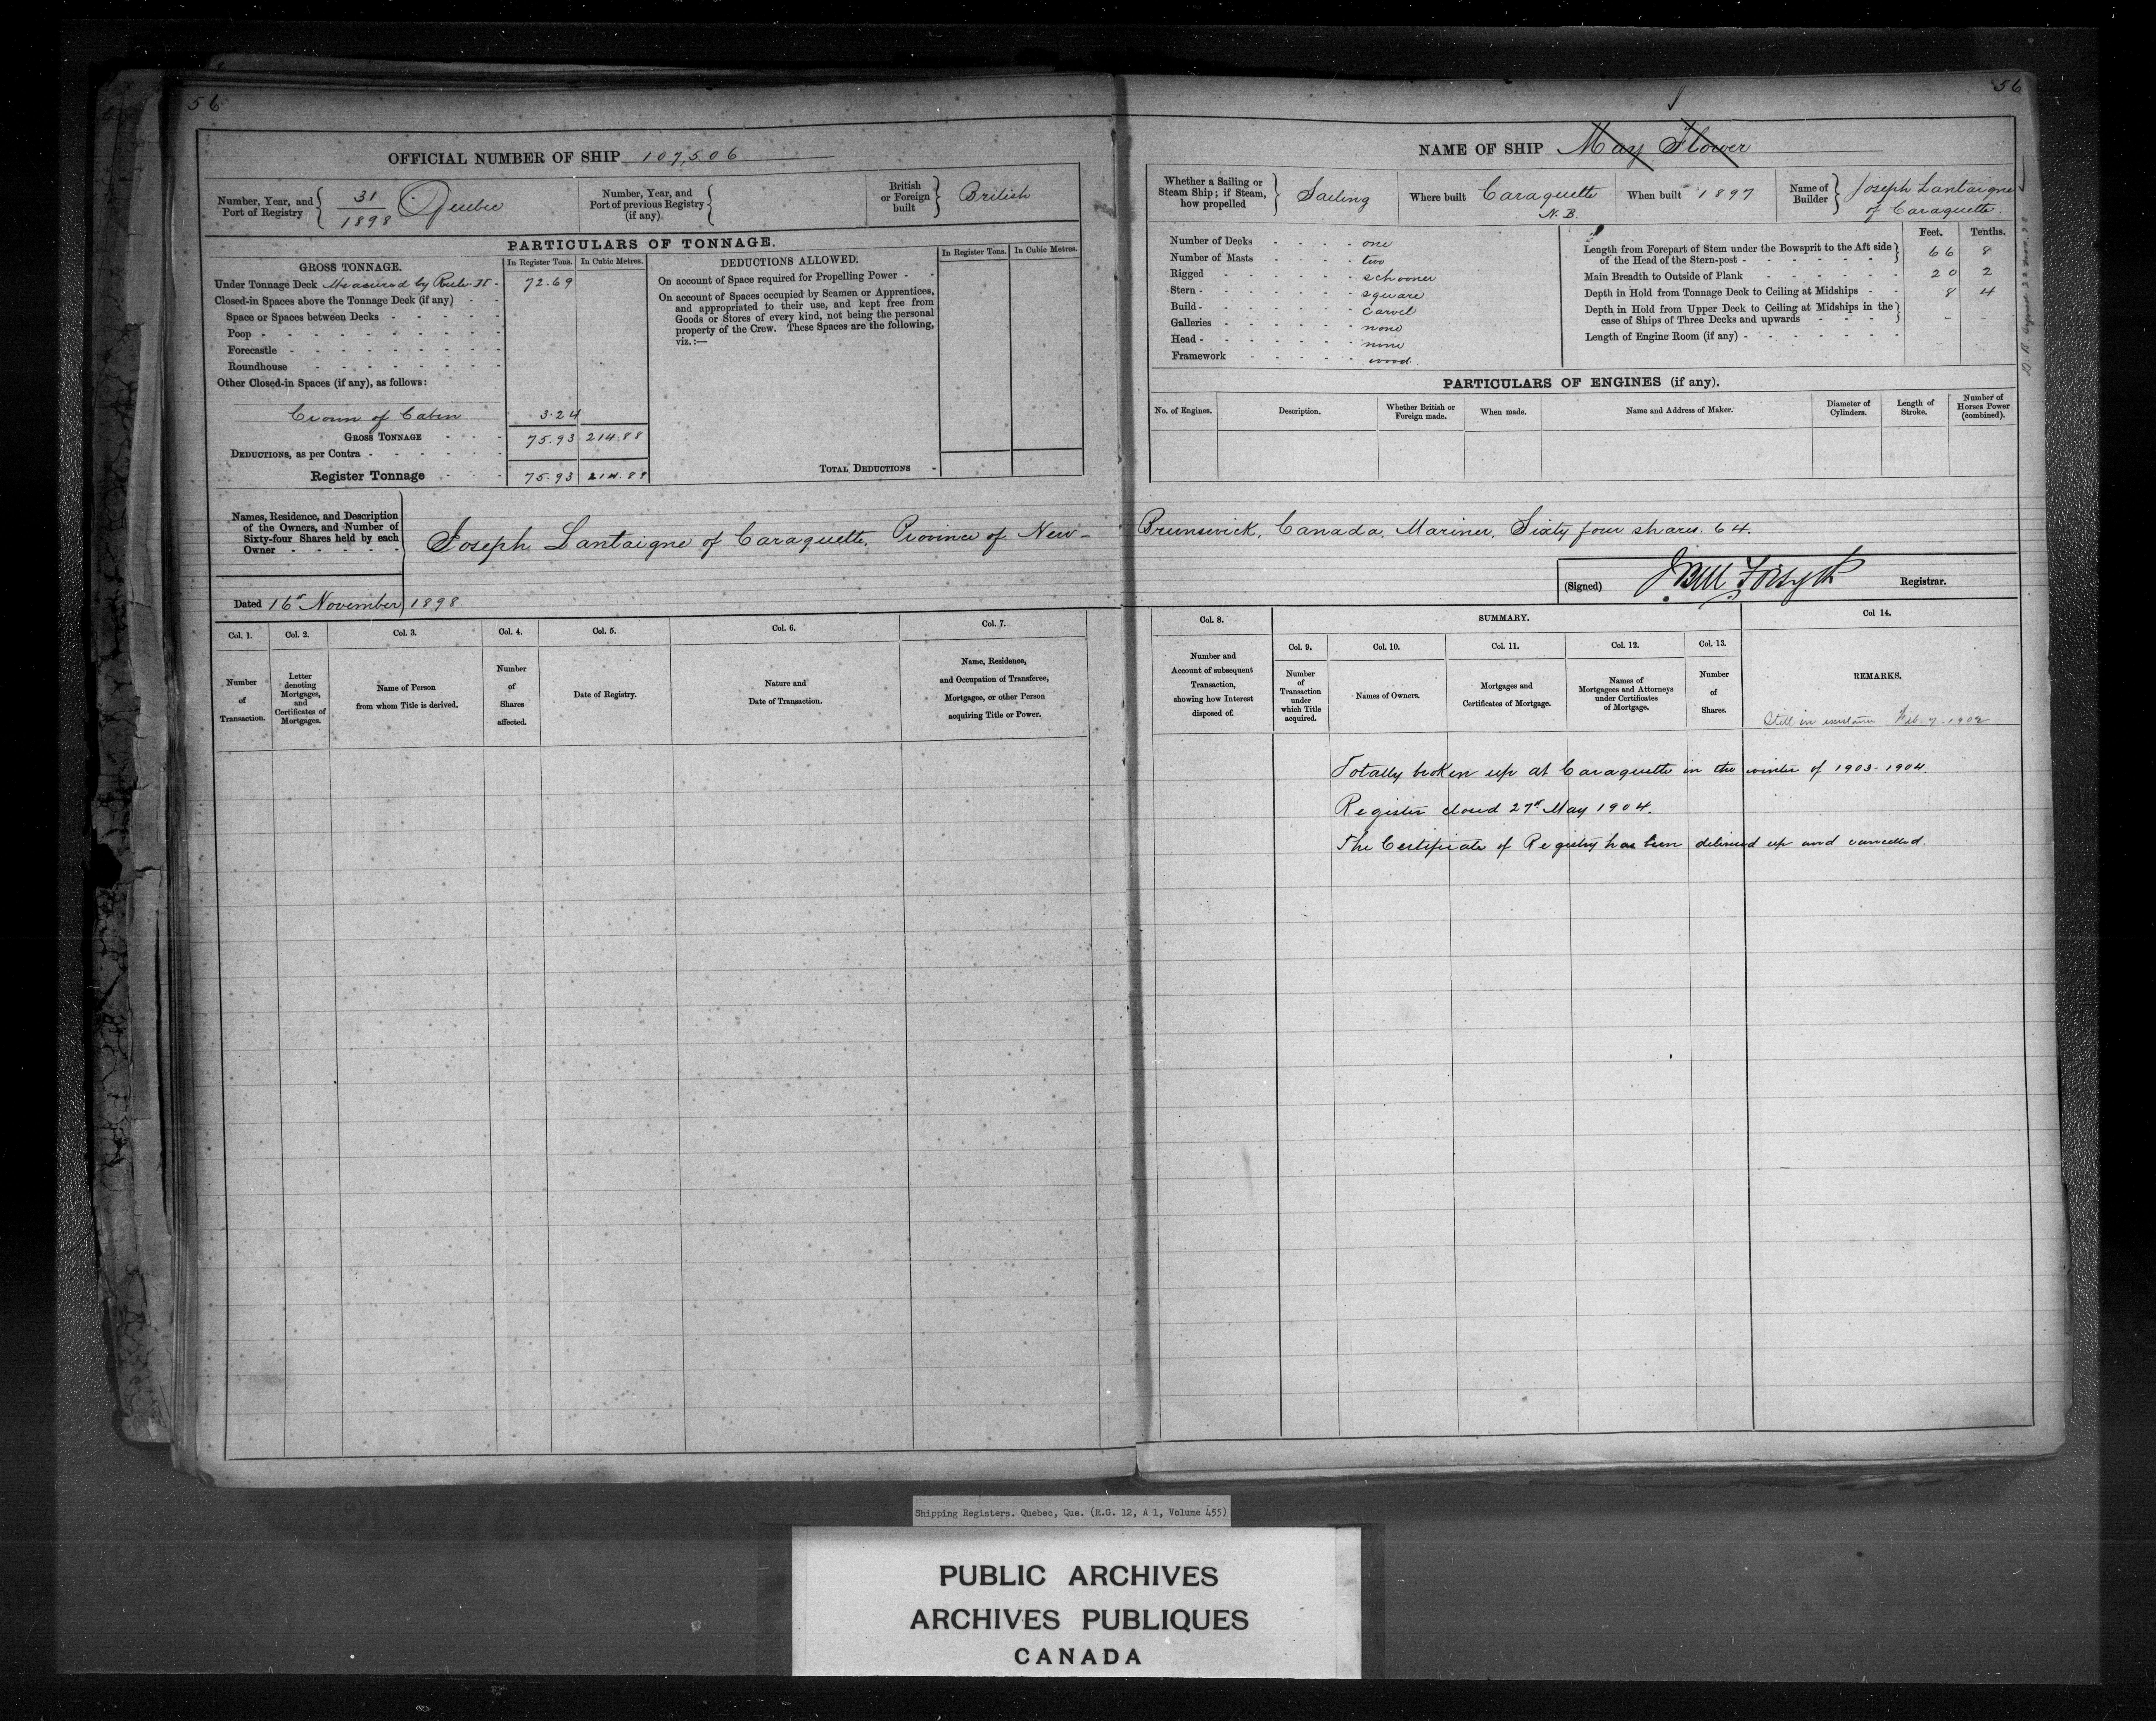 56
OFFICIAL NUMBER OF SHIP 107,506
Number, Year, and Port of Registry 31/1898 Quebec
Number, Year, and Port of previous Registry (if any)
British or Foreign built British
PARTICULARS OF TONNAGE.
GROSS TONNAGE. In Register Tons. In Cubic Metres.
Under Tonnage Deck Measured by Rule II - 72.69
Closed-in Spaces above the Tonnage Deck (if any)
Space or Spaces between Decks
Poop
Forecastle
Roundhouse
Other Closed-in Spaces (if any), as follows:
Crown of Cabin 3.24
GROSS TONNAGE 75.93 214.88
DEDUCTIONS, as per Contra
Register Tonnage 75.93 214.88
DEDUCTIONS ALLOWED. In Register Tons. In Cubic Metres.
On account of Space required for Propelling Power
On account of Spaces occupied by Seamen or Apprentices,
and appropriated to their use, and kept free from
Goods or Stores of every kind, not being the personal
property of the Crew. These Spaces are the following,
viz.:—
TOTAL DEDUCTIONS
Names, Residence, and Description
of the Owners, and Number of
Sixty-four Shares held by each
Owner
Joseph Lantaigne of Caraquette, Province of New-
Dated 16th November 1898
Col. 1. Col. 2. Col. 3. Col. 4. Col. 5. Col. 6. Col. 7.
Number of Transaction.
Letter denoting Mortgages, and Certificates of Mortgages.
Name of Person from whom Title is derived.
Number of Shares affected.
Date of Registry.
Nature and Date of Transaction.
Name, Residence, and Occupation of Transferee, Mortgagee, or other Person acquiring Title or Power.
56
NAME OF SHIP May Flower
Whether a Sailing or Steam Ship; if Steam, how propelled Sailing
Where built Caraquette N.B.
When built 1897
Name of Builder Joseph Lantaigne of Caraquette.
Number of Decks one
Number of Masts two
Rigged schooner
Stern square
Build carvel
Galleries none
Head none
Framework wood.
Feet. Tenths.
Length from Forepart of Stem under the Bowsprit to the Aft side of the Head of the Stern-post 66 8
Main Breadth to Outside of Plank 20 2
Depth in Hold from Tonnage Deck to Ceiling at Midships 8 4
Depth in Hold from Upper Deck to Ceiling at Midships in the case of Ships of Three Decks and upwards
Length of Engine Room (if any)
PARTICULARS OF ENGINES (if any).
No. of Engines. Description. Whether British or Foreign made. When made. Name and Address of Maker. Diameter of Cylinders. Length of Stroke. Number of Horses Power (combined).
Brunswick, Canada, Mariner, Sixty four shares. 64.
(Signed) Forsyth Registrar.
Col. 8. SUMMARY. Col 14.
Col. 9. Col. 10. Col. 11. Col. 12. Col. 13.
Number and Account of subsequent Transaction, showing how Interest disposed of.
Number of Transaction under which Title acquired.
Names of Owners.
Mortgages and Certificates of Mortgage.
Names of Mortgagees and Attorneys under Certificates of Mortgage.
Number of Shares.
REMARKS.
Still in existence Feb. 7. 1902
Totally broken up at Caraquette in the winter of 1903-1904.
Register closed 27th May 1904.
The Certificate of Registry has been delivered up and cancelled.
Shipping Registers. Quebec, Que. (R.G. 12, A 1, Volume 455)
PUBLIC ARCHIVES
ARCHIVES PUBLIQUES
CANADA